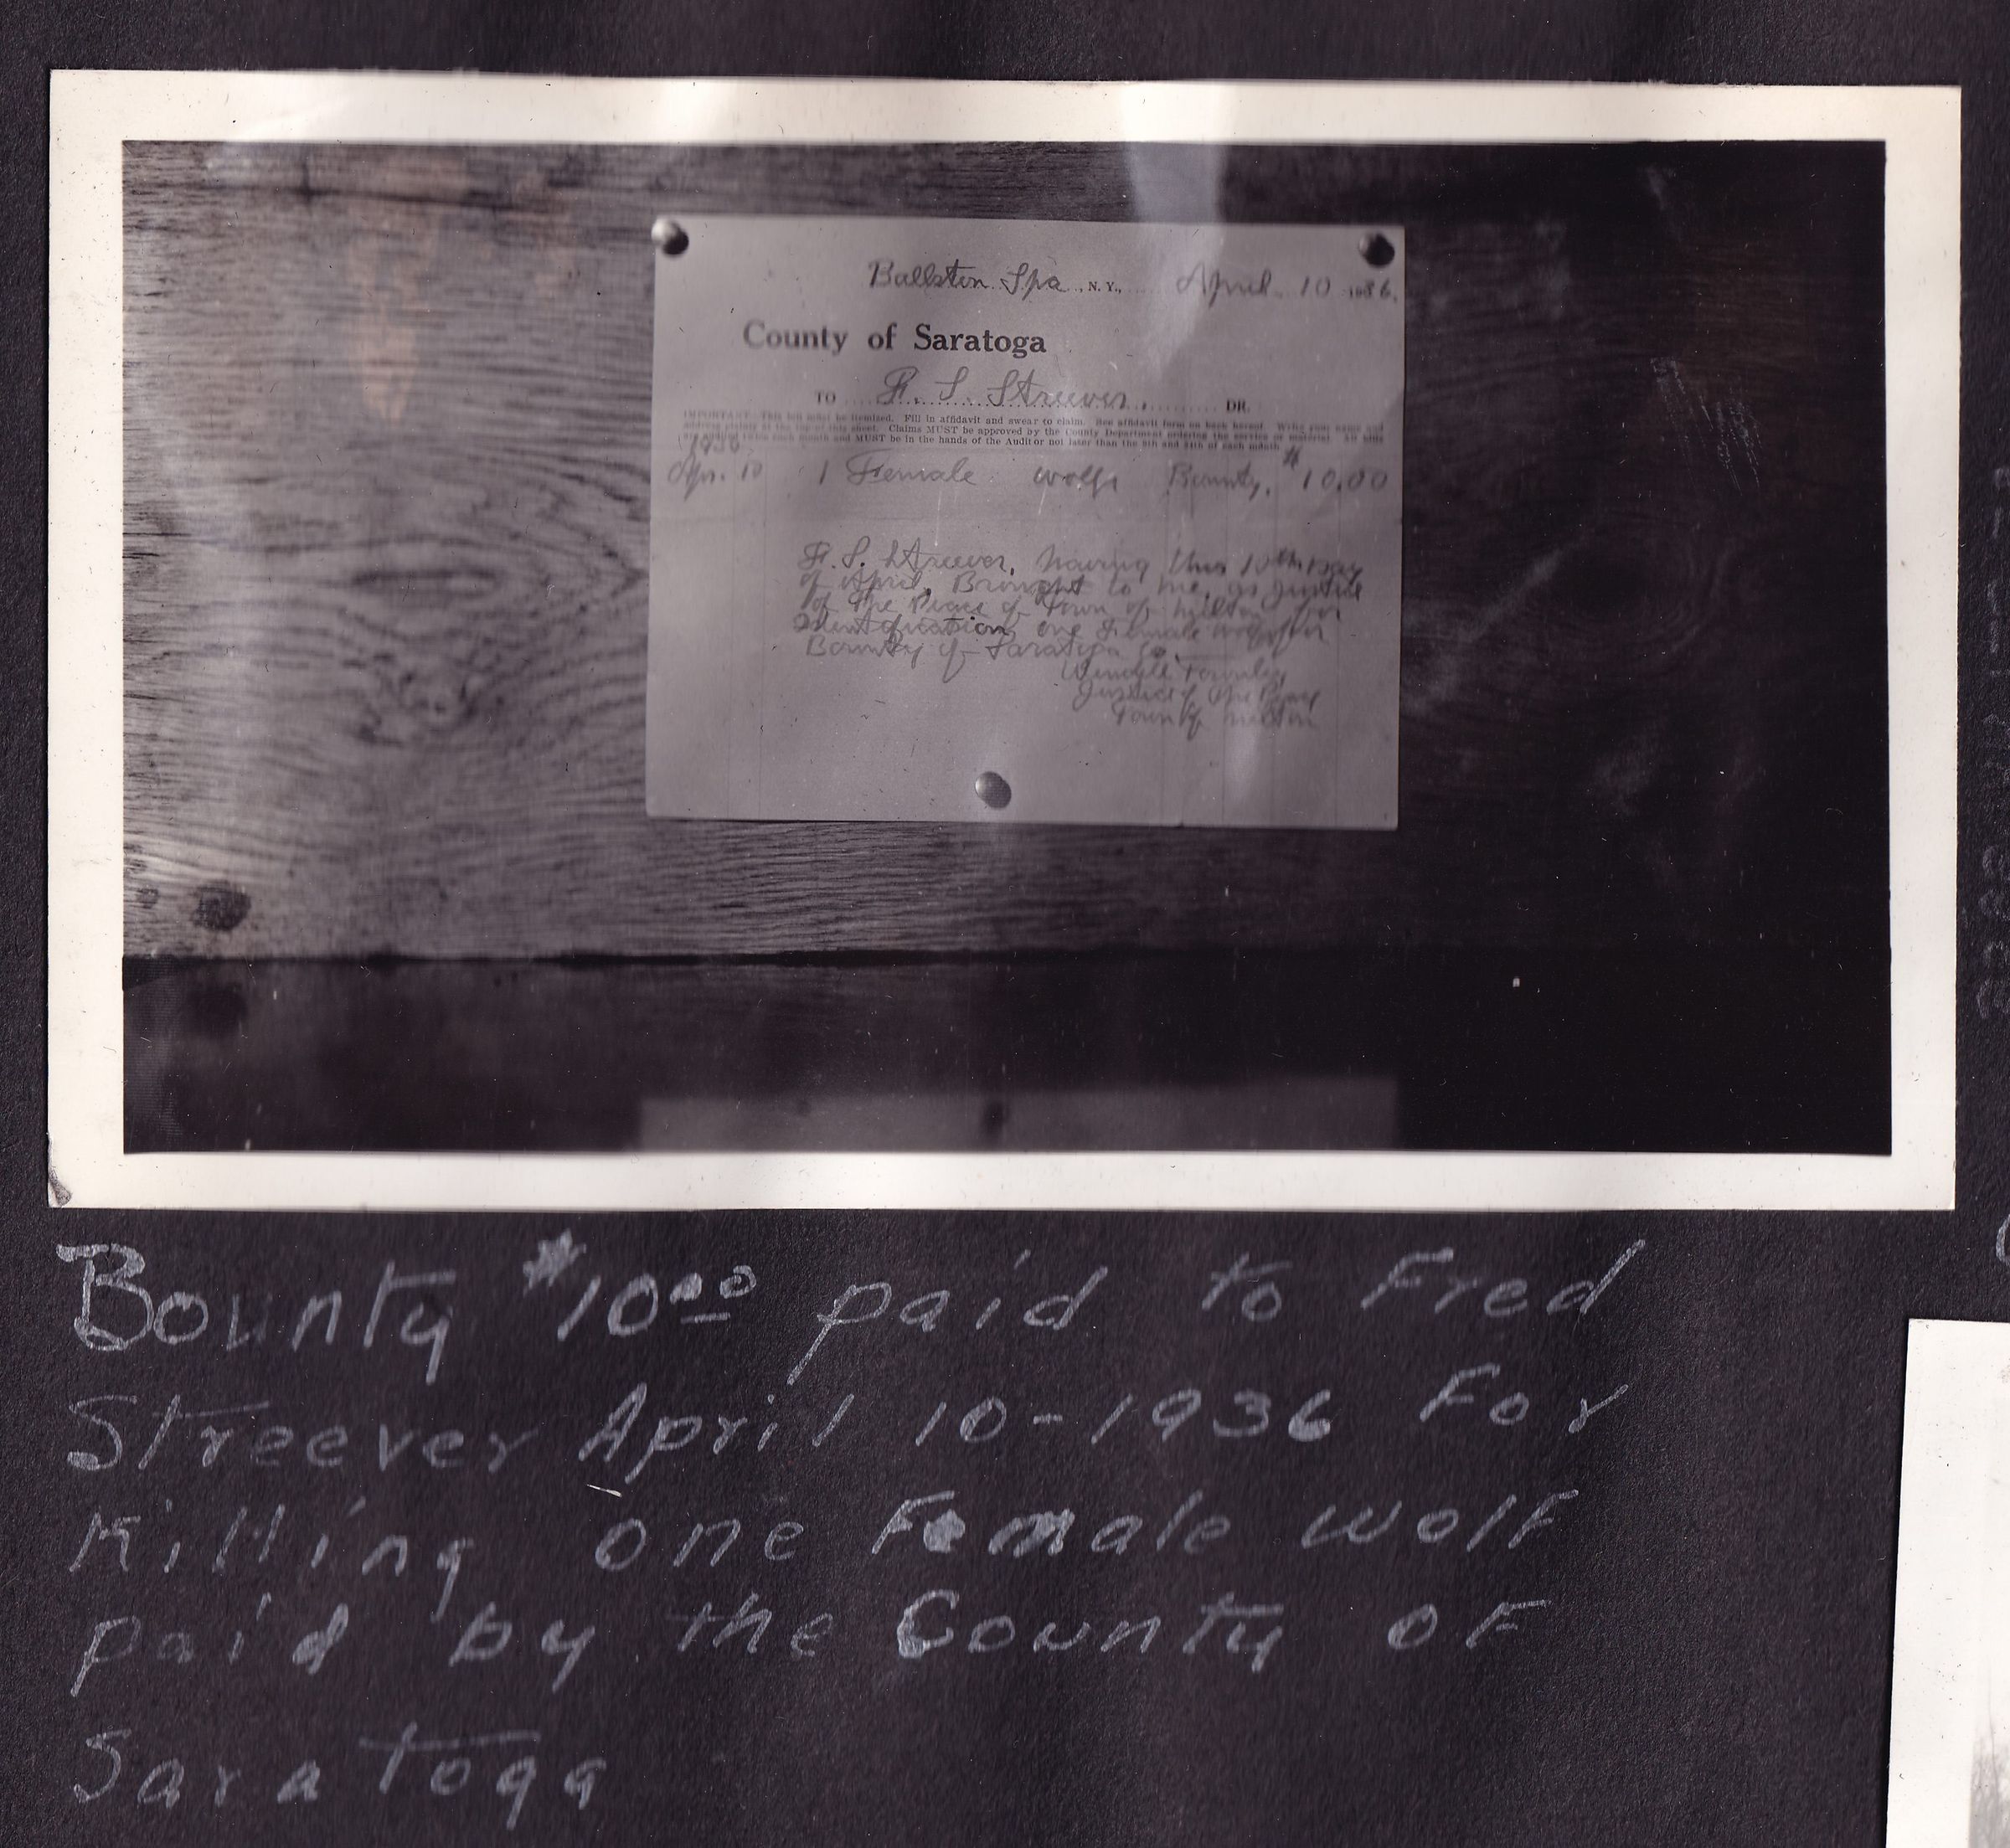 Ballston Spa, N. Y., April 10 1936.
County of Saratoga
TO F. S. Streever, DR.
IMPORTANT—This bill must be itemized. Fill in affidavit and swear to claim. See affidavit form on back hereof. Write your name and
address plainly at the top of this sheet. Claims MUST be approved by the County Department ordering the service or material. All bills
each month and MUST be in the hands of the Auditor not later than the 8th and 24th of each month
1936
Apr. 10 1 Female wolf Bounty, $10.00
F. S. Streever, having this 10th day
of April, Brought to me, as Justice
of the Peace of Town of Milton for
Identification one Female wolf for
Bounty of Saratoga Co.
Wendell Townley,
Justice of the Peace
Town of Milton
Bounty $10.00 paid to Fred
Streever April 10-1936 For
Killing one Female wolf
paid by the County of
Saratoga